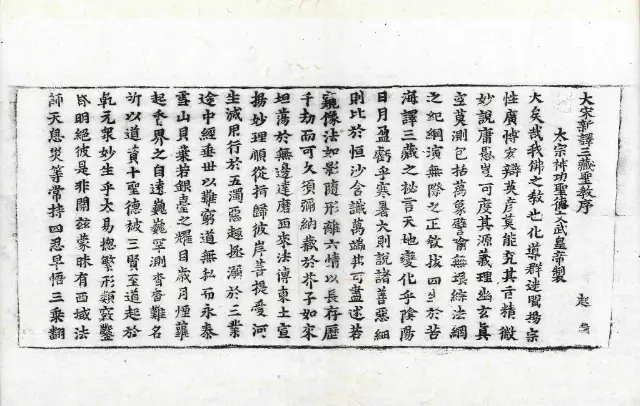 大宋新譯三藏聖教序
起
太宗神功聖德文武皇帝製
大矣哉我佛之教也化導群迷闡揚宗
性廣博宏辯英彥莫能究其旨精微
妙說庸愚豈可度其源義理幽玄真
空莫測包括萬象譬喻無垠綜法網
之紀綱演無際之正教拔四生於苦
海譯三藏之祕言天地變化乎陰陽
日月盈虧乎寒暑大則說諸善惡細
則比於恒沙含識萬端弗可盡述若
窺像法如影隨形離六情以長存歷
千劫而可久須彌納藏於芥子如來
坦蕩於無邊達磨西來法傳東土宣
揚妙理順從指歸彼岸菩提愛河
生滅用行於五濁惡趣拯溺於三業
途中經垂世以難窮道無私而永泰
雪山貝葉若銀臺之耀目歲月煙蘿
起香界之自遠巍巍罕測杳杳難名
所以道資十聖德被三賢至道起於
乾元眾妙生乎太易揔繁形類竅鑿
昏明絕彼是非開茲蒙昧有西域法
師天息災等常持四忍早悟三乘翻